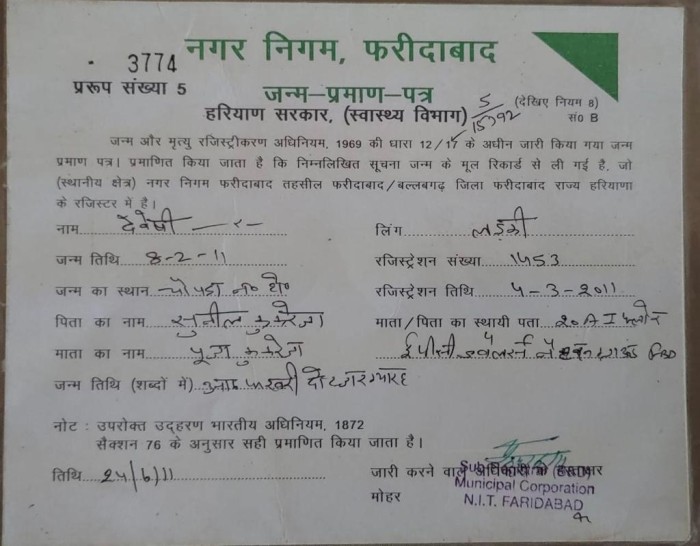 नगर निगम, फरीदाबाद
3774
प्ररूप संख्या 5
जन्म–प्रमाण–पत्र
हरियाण सरकार, (स्वास्थ्य विभाग)
5/15392
(देखिए नियम 8)
सं० B
जन्म और मृत्यु रजिस्ट्रीकरण अधिनियम, 1969 की धारा 12/17 के अधीन जारी किया गया जन्म
प्रमाण पत्र। प्रमाणित किया जाता है कि निम्नलिखित सूचना जन्म के मूल रिकार्ड से ली गई है, जो
(स्थानीय क्षेत्र) नगर निगम फरीदाबाद तहसील फरीदाबाद/बल्लबगढ़ जिला फरीदाबाद राज्य हरियाणा
के रजिस्टर में है।
नाम लिंग लड़की
जन्म तिथि 8-2-11 रजिस्ट्रेशन संख्या 1453
जन्म का स्थान रजिस्ट्रेशन तिथि 4-3-2011
पिता का नाम सुनील कुकरेजा माता/पिता का स्थायी पता 20 A I
माता का नाम पूजा कुकरेजा
जन्म तिथि (शब्दों में) आठ फरवरी दो हजार ग्यारह
नोट : उपरोक्त उद्हरण भारतीय अधिनियम, 1872
सैक्शन 76 के अनुसार सही प्रमाणित किया जाता है।
तिथि 24/6/11 जारी करने वाले अधिकारी के हस्ताक्षर
मोहर
Municipal Corporation
N.I.T. FARIDABAD